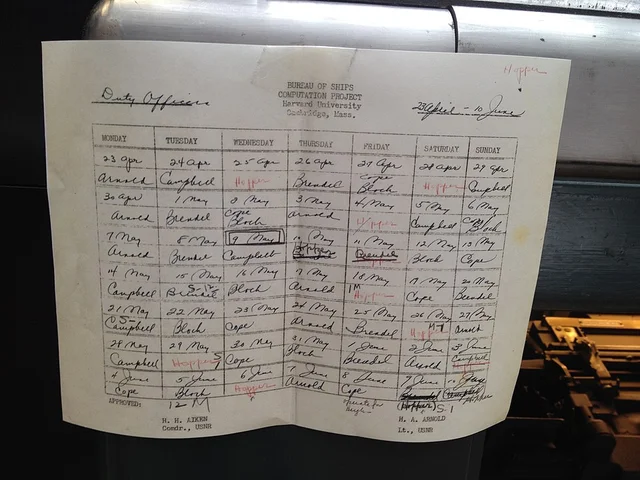 Hopper
Duty Officers
BUREAU OF SHIPS
COMPUTATION PROJECT
Harvard University
Cambridge, Mass.
23 April - 10 June
MONDAY TUESDAY WEDNESDAY THURSDAY FRIDAY SATURDAY SUNDAY
23 Apr 24 Apr 25 Apr 26 Apr 27 Apr 28 Apr 29 Apr
Arnold Campbell Hopper Brendel Cope Bloch Hopper Campbell
30 Apr 1 May 2 May 3 May 4 May 5 May 6 May
Arnold Brendel Cope Bloch Arnold Hopper Campbell Bloch
7 May 8 May 9 May 10 May 11 May 12 May 13 May
Arnold Brendel Campbell Hopper Brendel Bloch Cope
14 May 15 May 16 May 17 May 18 May 19 May 20 May
Campbell Brendel Bloch Arnold Hopper Cope Brendel
21 May 22 May 23 May 24 May 25 May 26 May 27 May
Campbell Bloch Cope Arnold Brendel Hopper Arnold
28 May 29 May 30 May 31 May 1 June 2 June 3 June
Campbell Hopper Cope Bloch Brendel Arnold Campbell
4 June 5 June 6 June 7 June 8 June 9 June 10 June
Cope Bloch Hopper Arnold Cope
APPROVED: 12 M
H. H. AIKEN
Comdr., USNR
H. A. ARNOLD
Lt., USNR